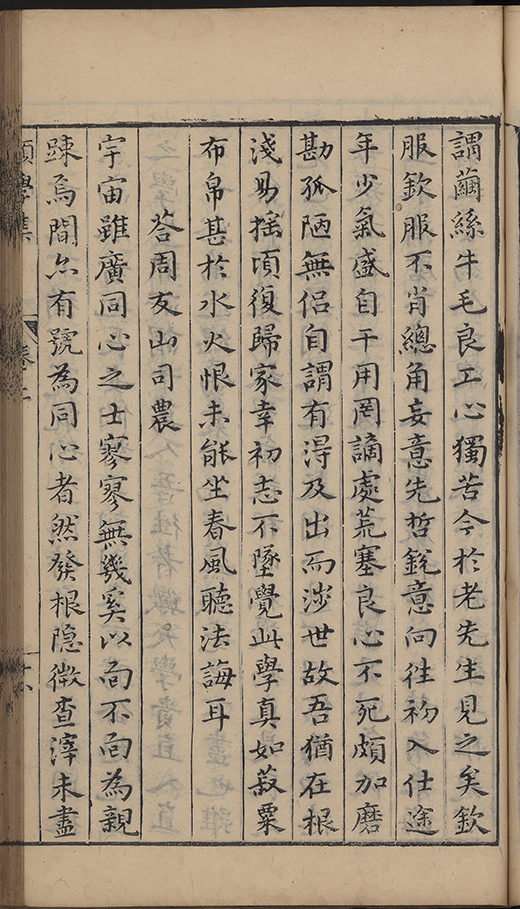 謂繭絲牛毛良工心獨苦今於老先生見之矣欽
服欽服不肖總角妄意先哲銳意向往初入仕途
年少氣盛自干用罔謫處荒塞良心不死頗加磨
勘孤陋無侶自謂有得及出而涉世故吾猶在根
淺易搖頃復歸家幸初志不墜覺此學真如菽粟
布帛甚於水火恨未能坐春風聽法誨耳
荅周友山司農
宇宙雖廣同心之士寥寥無幾奚以面不面為親
踈焉間亦有號為同心者然發根隐微查滓未盡
願學集
卷二